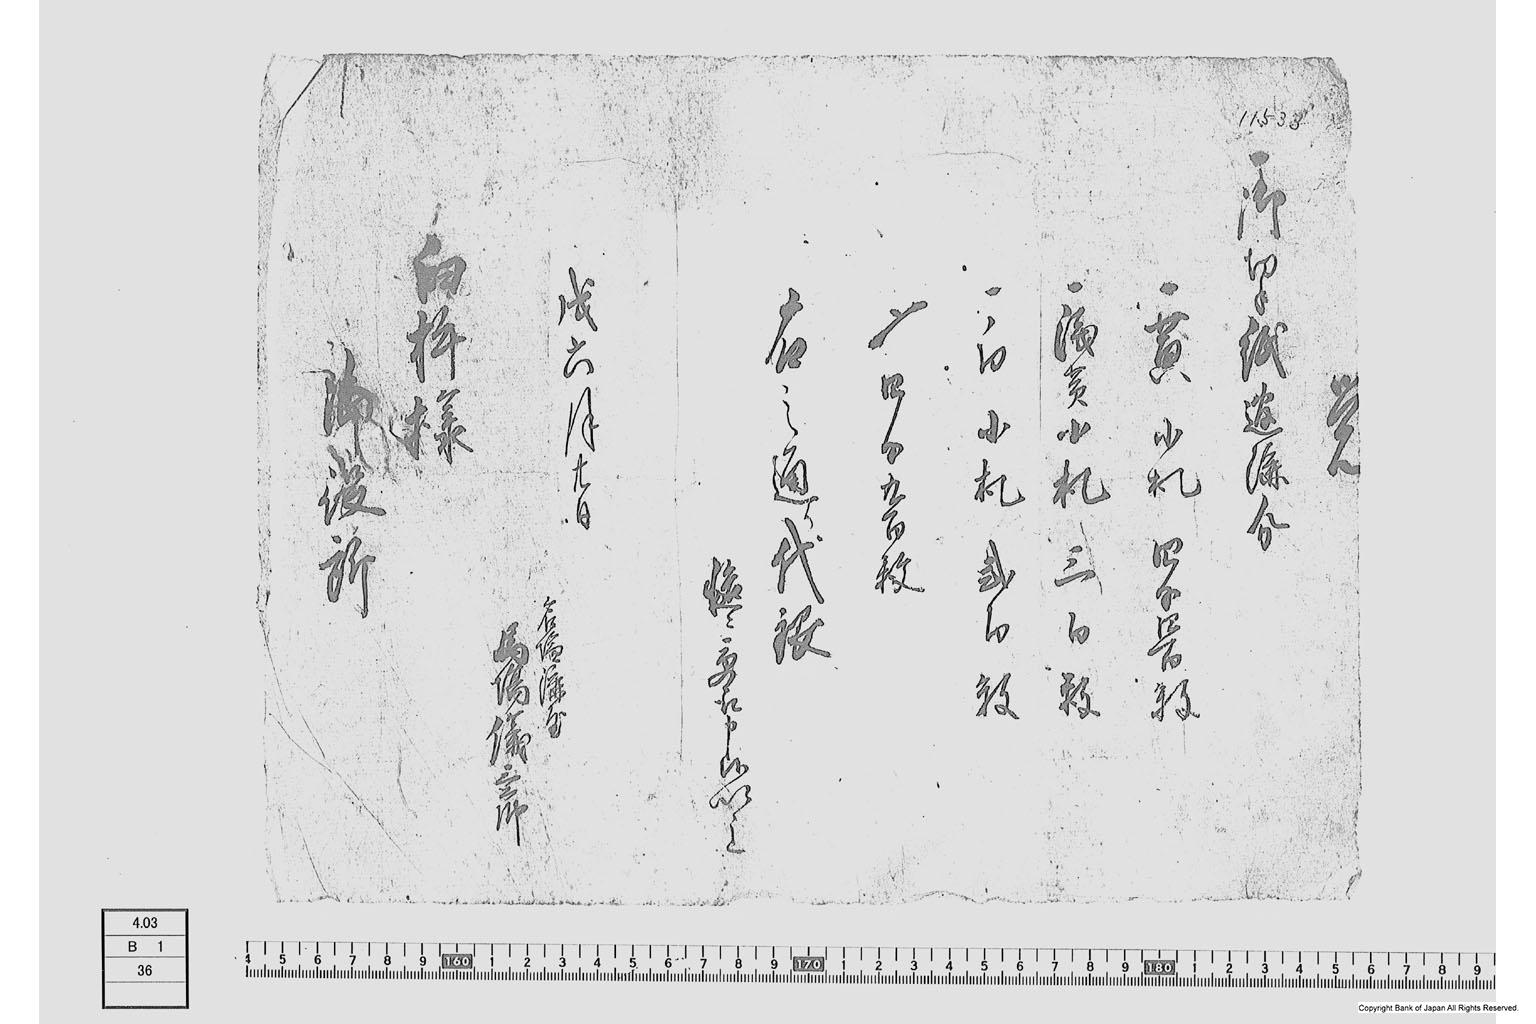 11533
覚
一御切手紙遣漉分
一壱〆小札四千四百枚
一弐〆小札三百枚
一、匁小札弐百枚
〆四口五百枚
右之通り代銀
慥ニ受取申候以上
戌六月廿日
名塩漉屋
馬場儀三郎
臼杵様
御役所
4.03
B 1
36
4 5 6 7 8 9 160 1 2 3 4 5 6 7 8 9 170 1 2 3 4 5 6 7 8 9 180 1 2 3 4 5 6 7 8 9
Copyright Bank of Japan All Rights Reserved.